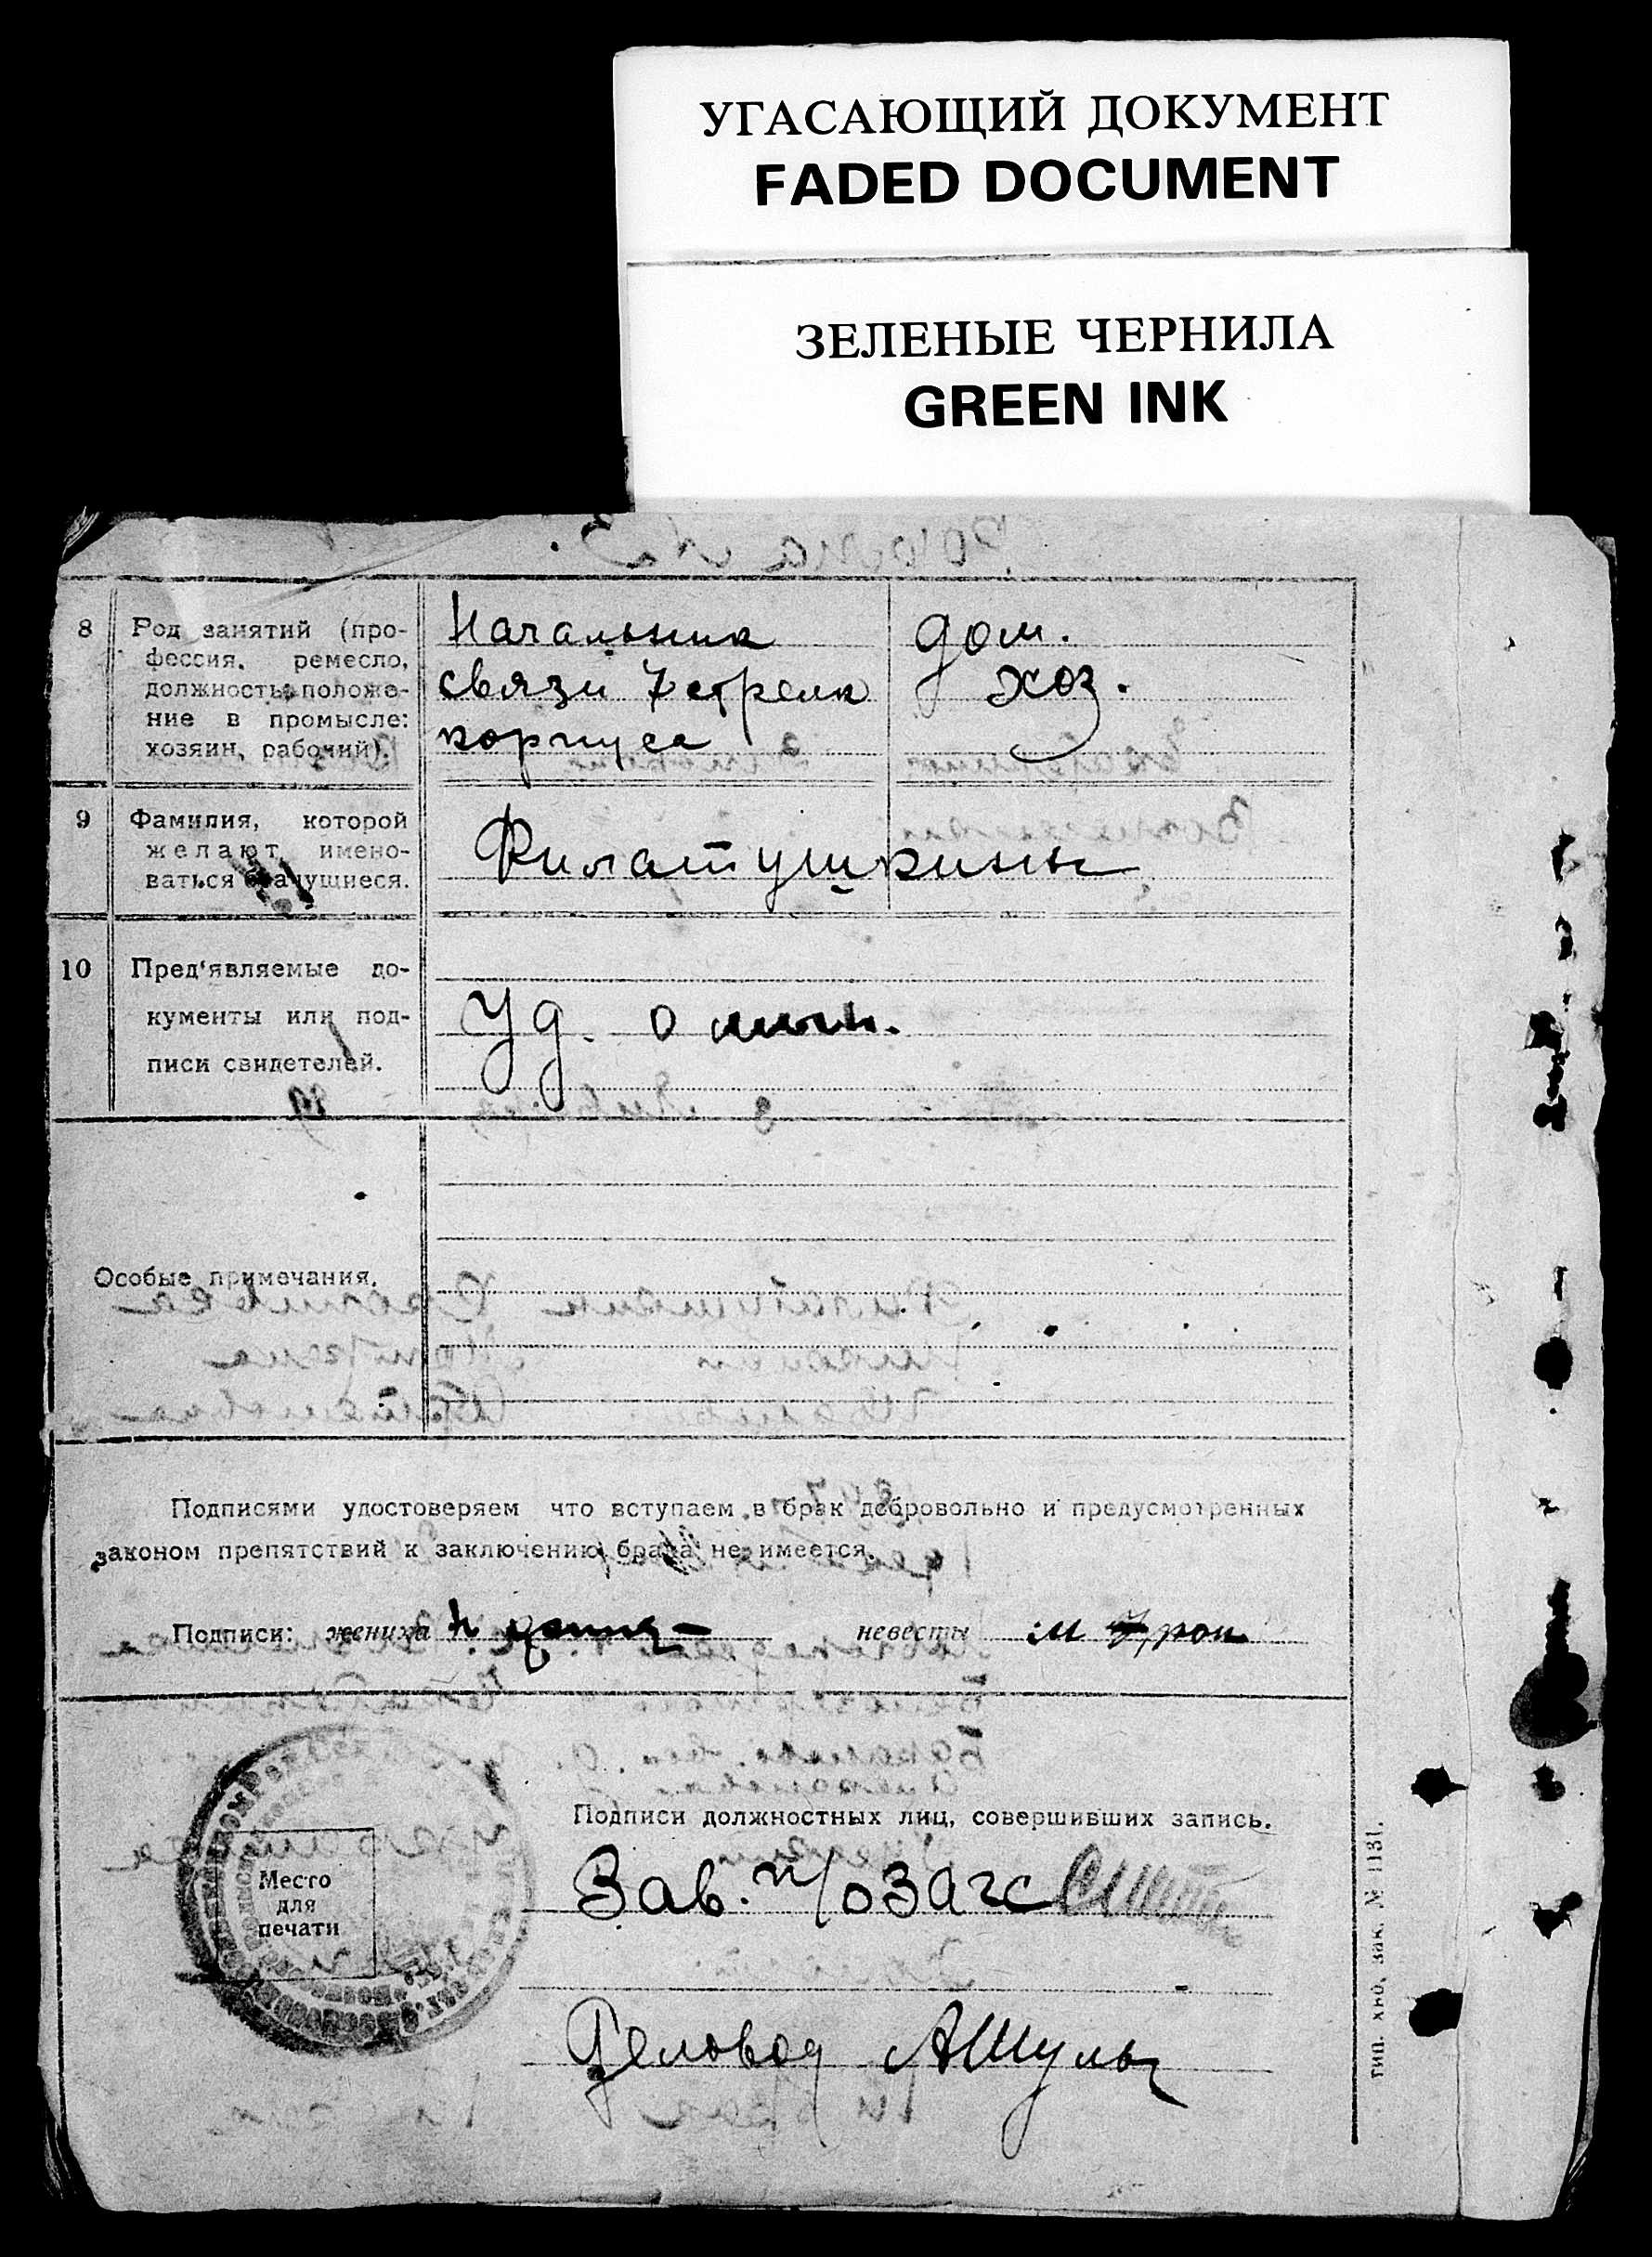 УГАСАЮЩИЙ ДОКУМЕНТ
FADED DOCUMENT
ЗЕЛЕНЫЕ ЧЕРНИЛА
GREEN INK
8 Род занятий (про-
фессия, ремесло,
должность: положе-
ние в промысле:
хозяин, рабочий).
Начальник
связи 7 стрелк
корпуса
дом.
хоз.
9 Фамилия, которой
желают имено-
ваться брачущиеся.
Филатушкины
10 Пред'являемые до-
кументы или под-
писи свидетелей.
Уд. о личн.
Особые примечания.
Подписями удостоверяем что вступаем в брак добровольно и предусмотренных
законом препятствий к заключению брака не имеется.
Подписи: жениха
невесты
Место
для
печати
Подписи должностных лиц, совершивших запись.
Зав. п/о Загс
Деловод АШульц
тип. хво, зак. № 1131.